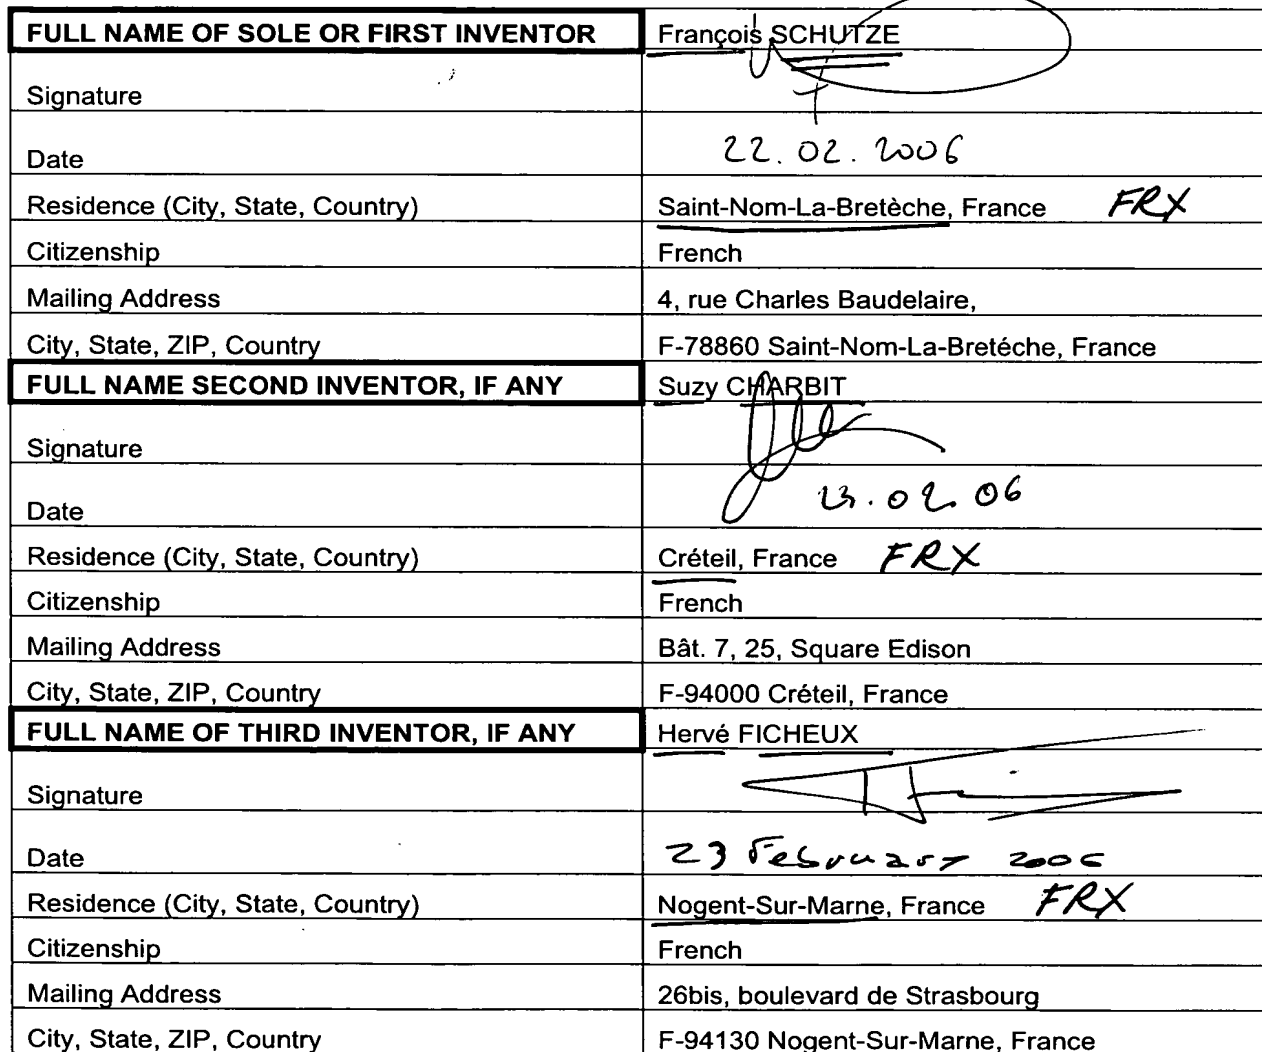 FULL NAME OF SOLE OR FIRST INVENTOR François SCHUTZE
Signature
Date 22.02.2006
Residence (City, State, Country) Saint-Nom-La-Bretèche, France FRX
Citizenship French
Mailing Address 4, rue Charles Baudelaire,
City, State, ZIP, Country F-78860 Saint-Nom-La-Bretéche, France
FULL NAME SECOND INVENTOR, IF ANY Suzy CHARBIT
Signature
Date 23.02.06
Residence (City, State, Country) Créteil, France FRX
Citizenship French
Mailing Address Bât. 7, 25, Square Edison
City, State, ZIP, Country F-94000 Créteil, France
FULL NAME OF THIRD INVENTOR, IF ANY Hervé FICHEUX
Signature
Date 23 February 2006
Residence (City, State, Country) Nogent-Sur-Marne, France FRX
Citizenship French
Mailing Address 26bis, boulevard de Strasbourg
City, State, ZIP, Country F-94130 Nogent-Sur-Marne, France